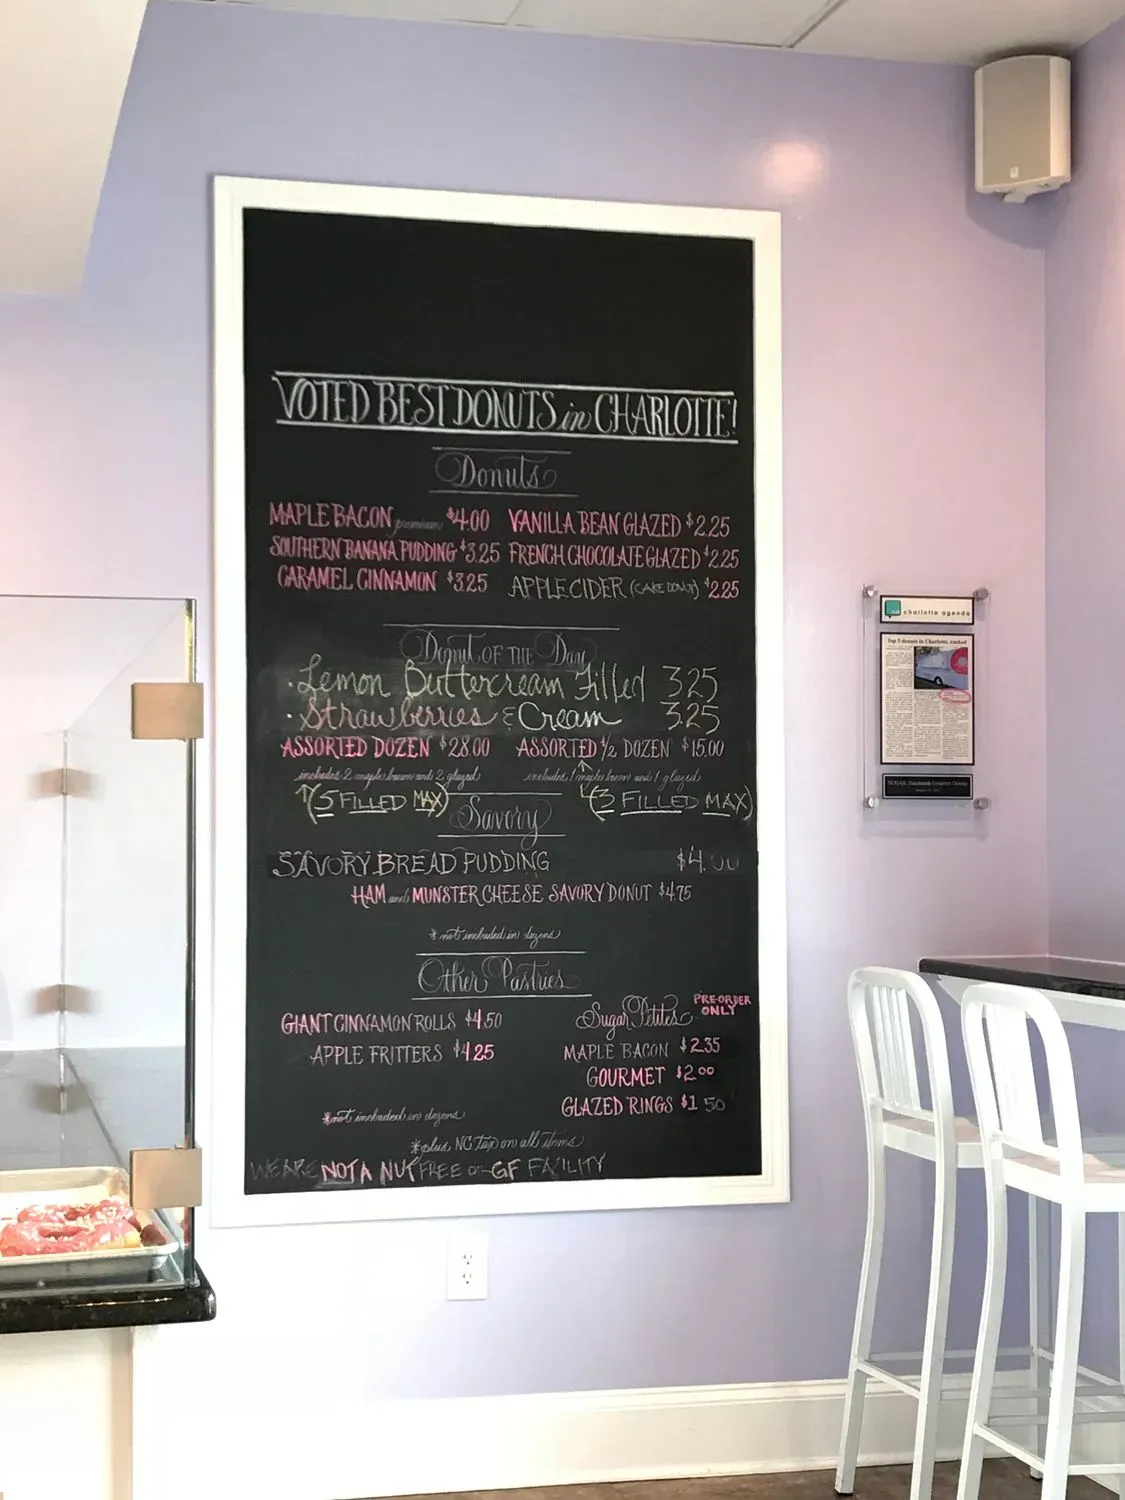 VOTED BEST DONUTS in CHARLOTTE!
Donuts
MAPLE BACON premium $4.00 VANILLA BEAN GLAZED $2.25
SOUTHERN BANANA PUDDING $3.25 FRENCH CHOCOLATE GLAZED $2.25
CARAMEL CINNAMON $3.25 APPLE CIDER (CAKE DONUT) $2.25
Donut OF THE Day
· Lemon Buttercream Filled 3.25
· Strawberries & Cream 3.25
ASSORTED DOZEN $28.00 ASSORTED 1/2 DOZEN $15.00
includes 2 maple bacon and 2 glazed includes 1 maple bacon and 1 glazed
(5 FILLED MAX) (3 FILLED MAX)
Savory
SAVORY BREAD PUDDING $4.00
HAM and MUNSTER CHEESE SAVORY DONUT $4.75
*not included in dozens
Other Pastries
GIANT CINNAMON ROLLS $4.50
APPLE FRITTERS $4.25
*not included in dozens
Sugar Petites PRE-ORDER ONLY
MAPLE BACON $2.35
GOURMET $2.00
GLAZED RINGS $1.50
*plus NC tax on all items
WE ARE NOT A NUT FREE or GF FACILITY
charlotte agenda
Top 5 donuts in Charlotte, ranked
SUGAR Handmade Gourmet Donuts